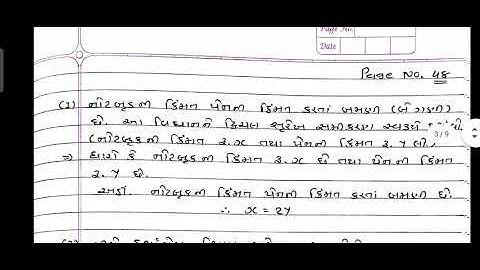 Page No.
Date
Page No. 48
(1) નોટબૂકની કિંમત પેનની કિંમત કરતાં બમણી (બે ગણી)
છે. આ વિધાનને દ્વિચલ સુરેખ સમીકરણ સ્વરૂપે
3/9
(નોટબૂકની કિંમત રૂ. x તથા પેનની કિંમત રૂ. y લો.)
⇒ ધારો કે નોટબૂકની કિંમત રૂ. x છે તથા પેનની કિંમત
રૂ. y છે.
અહીં નોટબૂકની કિંમત પેનની કિંમત કરતાં બમણી છે.
∴ x = 2y